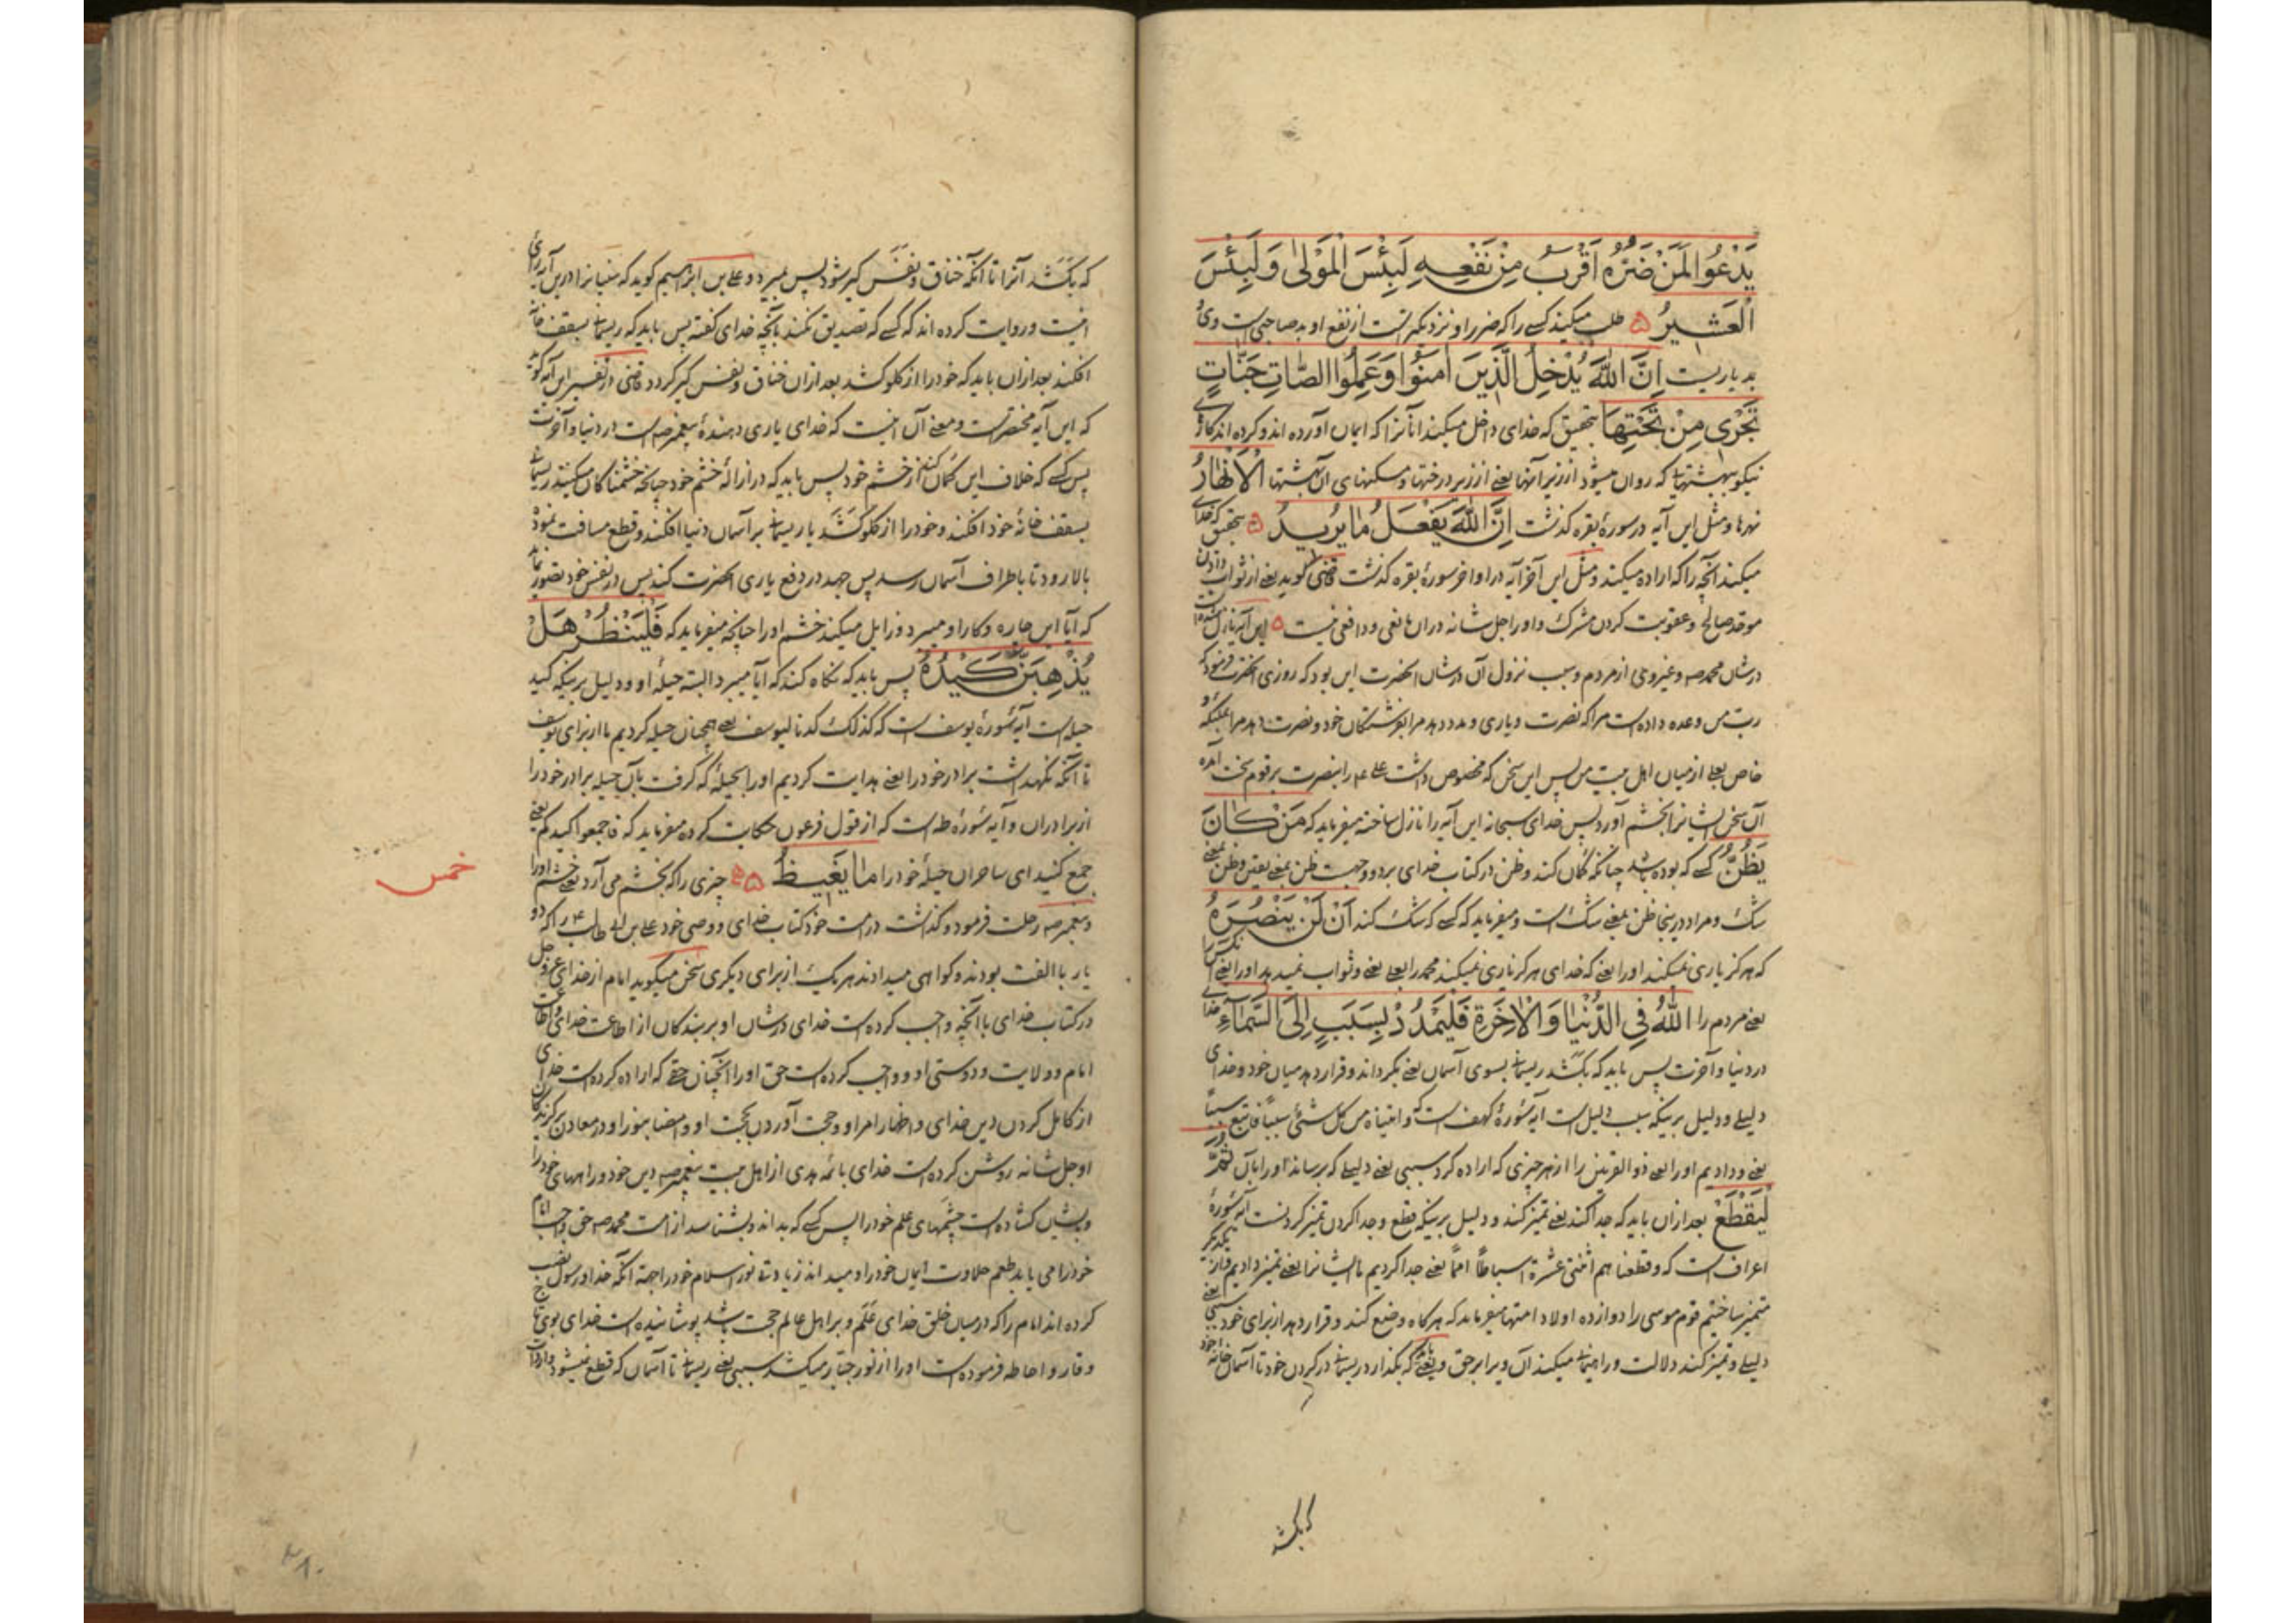 یَدْعُوا لَمَنْ ضَرُّهُ اَقْرَبُ مِنْ نَفْعِهِ لَبِئْسَ الْمَوْلیٰ وَلَبِئْسَ
الْعَشیرُ ۵ طلب میکند کسی را که ضرر او نزدیکتر است از نفع او بد صاحبی است وی و
بد یاریست اِنَّ اللّٰهَ یُدْخِلُ الَّذینَ اٰمَنُوا وَعَمِلُوا الصّالِحاتِ جَنّاتٍ
تَجْری مِنْ تَحْتِهَا بتحقیق که خدای داخل میکند آنانرا که ایمان آورده اند و کرده اند کارهای
نیکو ببهشتهائی که روان میشود از زیر آنها یعنی از زیر درختها و مسکنهای آن بهشتها الْاَنْهارُ
نهرها و مثل این آیه در سورهٔ بقره گذشت اِنَّ اللّٰهَ یَفْعَلُ مٰا یُریدُ ۵ بتحقیق که خدای
میکند آنچه را که اراده میکند و مثل این آخر آیه در اواخر سورهٔ بقره گذشت قاضی گوید یعنی از ثواب دادن
موحد صالح و عقوبت کردن مشرک و او را جل شانه در آن مانعی و دافعی نیست ۵ این آیه نازل شده است
در شان محمد صه و غیر وی از مردم و سبب نزول آن در شان آنحضرت این بود که روزی آنحضرت فرمود که
رب من وعده داده است مرا که نصرت و یاری و مدد دهد مرا بفرشتگان خود و نصرت دهد مرا بملائکه و
خاص بعلی از میان اهل بیت من پس این سخن که مخصوص داشت علی ع را بنصرت بر قوم سخت آمد و
آن سخن ایشانرا بخشم آورد پس خدای سبحانه این آیه را نازل ساخته میفرماید که مَنْ کٰانَ
یَظُنُّ کسی که بوده باشد چنانکه گمان کند و ظن در کتاب خدای بر دو وجهست ظن بمعنی یقین و ظن بمعنی
شک و مراد در اینجا ظن بمعنی شک است و میفرماید که کسی که شک کند اَنْ لَنْ یَنْصُرَهُ
که هرگز یاری نمیکند او را یعنی که خدای هرگز یاری نمیکند محمد را بعلی یعنی و ثواب نمیدهد او را یعنی
یعنی مردم را اللّٰهُ فِی الدُّنْیٰا وَالْاٰخِرَةِ فَلْیَمْدُدْ بِسَبَبٍ اِلَی السَّمٰآءِ خدای
در دنیا و آخرت پس باید که بکشد ریسمانی بسوی آسمان یعنی بگرداند و قرار دهد میان خود و خدای
دلیلی و دلیل بر اینکه سبب دلیل است آیهٔ سورهٔ کهف است که و اتیناه من کل شئ سببا فاتبع سببا
یعنی و دادیم او را یعنی ذو القرنین را از هر چیزی که اراده کرد سببی یعنی دلیلی که برساند او را بآن ثُمَّ
لْیَقْطَعْ بعد از آن باید که جدا کند یعنی تمییز کند و دلیل بر اینکه قطع و جدا کردن تمییز کردنست آیهٔ سورهٔ
اعراف است که و قطعنا هم اثنتی عشرة اسباطا امما یعنی جدا کردیم ما ایشانرا یعنی تمییز دادیم و از یکدیگر
متمیز ساختیم قوم موسی را دوازده اولاد امتها میفرماید که هر گاه وضع کند و قرار دهد از برای خود سببی یعنی
دلیلی و تمییز کند دلالت و راهنمائی میکند آن ویرا بر حق و یعنی باید که بگذارد ریسمانی در گردن خود تا آسمان خانه خود
که بکشد
که بکشد آنرا تا آنکه خناق و نفس گیر شود پس بمیرد و علی بن ابراهیم گوید که سفیانرا در این آیه رائی
اینست و روایت کرده اند که کسی که تصدیق نکند بآنچه خدای گفته پس باید که ریسمانی بسقف خانه
افکند بعد از آن باید که خود را از گلو کشد بعد از آن خناق و نفس گیر گردد قاضی در تفسیر این آیه گوید
که این آیه مختصر است و معنی آن اینست که خدای یاری دهندهٔ پیغمبر صه است در دنیا و آخرت
پس کسی که خلاف این گمان کند از خشم خود پس باید که در ازالهٔ خشم خود چنانچه خشمناکان میکنند ریسمانی
بسقف خانهٔ خود افکند و خود را از گلو کشد یا ریسمانی بر آسمان دنیا افکند و قطع مسافت نموده
بالا رود تا باطراف آسمان رسد پس جهد در دفع یاری آنحضرت کند پس در نفس خود تصور نماید
که آیا این چاره و کار او میبرد و زایل میکند خشم او را چنانکه میفرماید که فَلْیَنْظُرْ هَلْ
یُذْهِبَنَّ کَیْدُهُ پس باید که نگاه کند که آیا میبرد البته حیلهٔ او و دلیل بر اینکه کید
حیله است آیهٔ سورهٔ یوسف است که کذلک کدنا لیوسف یعنی همچنان حیله کردیم ما از برای یوسف
تا آنکه نگهداشت برادر خود را یعنی هدایت کردیم او را بحیلهٔ که گرفت بآن حیله برادر خود را
از برادران و آیهٔ سورهٔ طه است که از قول فرعون حکایت کرده میفرماید که فاجمعوا کیدکم یعنی
جمع کنید ای ساحران حیلهٔ خود را مٰا یَغیظُ ۵ چیزی را که بخشم می آرد یعنی خشم او را
خمس
و پیغمبر صه رحلت فرمود و گذاشت در امت خود کتاب خدای و وصی خود علی بن ابی طالب ع را که دو
یار با الفت بودند و گواهی میدادند هر یک از برای دیگری سخن میگوید امام از خدای عز و جل
در کتاب خدای با آنچه واجب کرده است خدای در شان او بر بندگان از اطاعت خدای و اطاعت
امام و ولایت و دوستی او و واجب کرده است حق او را آنچنان حقی که اراده کرده است خدای
از کامل کردن دین خدای و اظهار امر او و حجت آوردن بحجت او و استضائه بنور او در معادن برگزیدگان
او جل شانه روشن کرده است خدای بائمه هدی از اهل بیت پیغمبر صه دین خود و راههای خود را
و بایشان گشاده است چشمهای علم خود را پس کسی که بداند و بشناسد از امت محمد صه حق واجب امام
خود را می یابد طعم حلاوت ایمان خود را و میداند زیادتی نور اسلام خود را جهة آنکه خدا و رسول نصب
کرده اند امام را که در میان خلق خدای علم و بر اهل عالم حجت باشد پوشانیده است خدای بوی تاج
وقار و احاطه فرموده است او را از نور جبار میکشد سببی یعنی ریسمانی تا آسمان که قطع نمیشود
۳۸۰